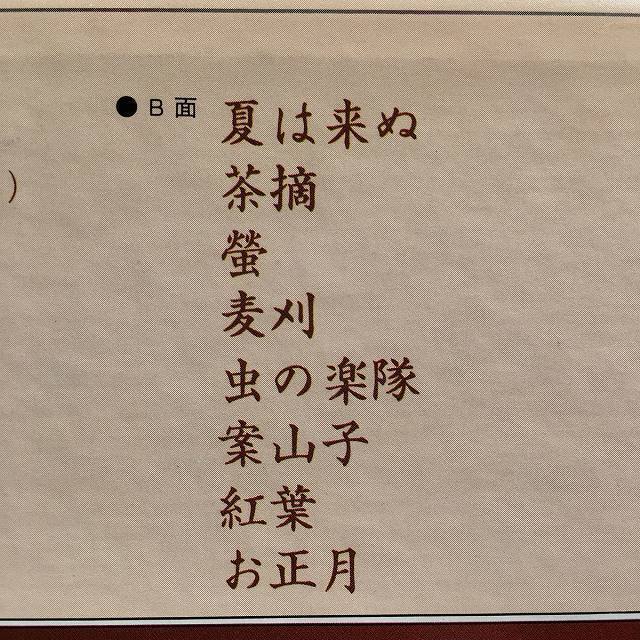 )
●B面 夏は来ぬ
茶摘
螢
麦刈
虫の楽隊
案山子
紅葉
お正月